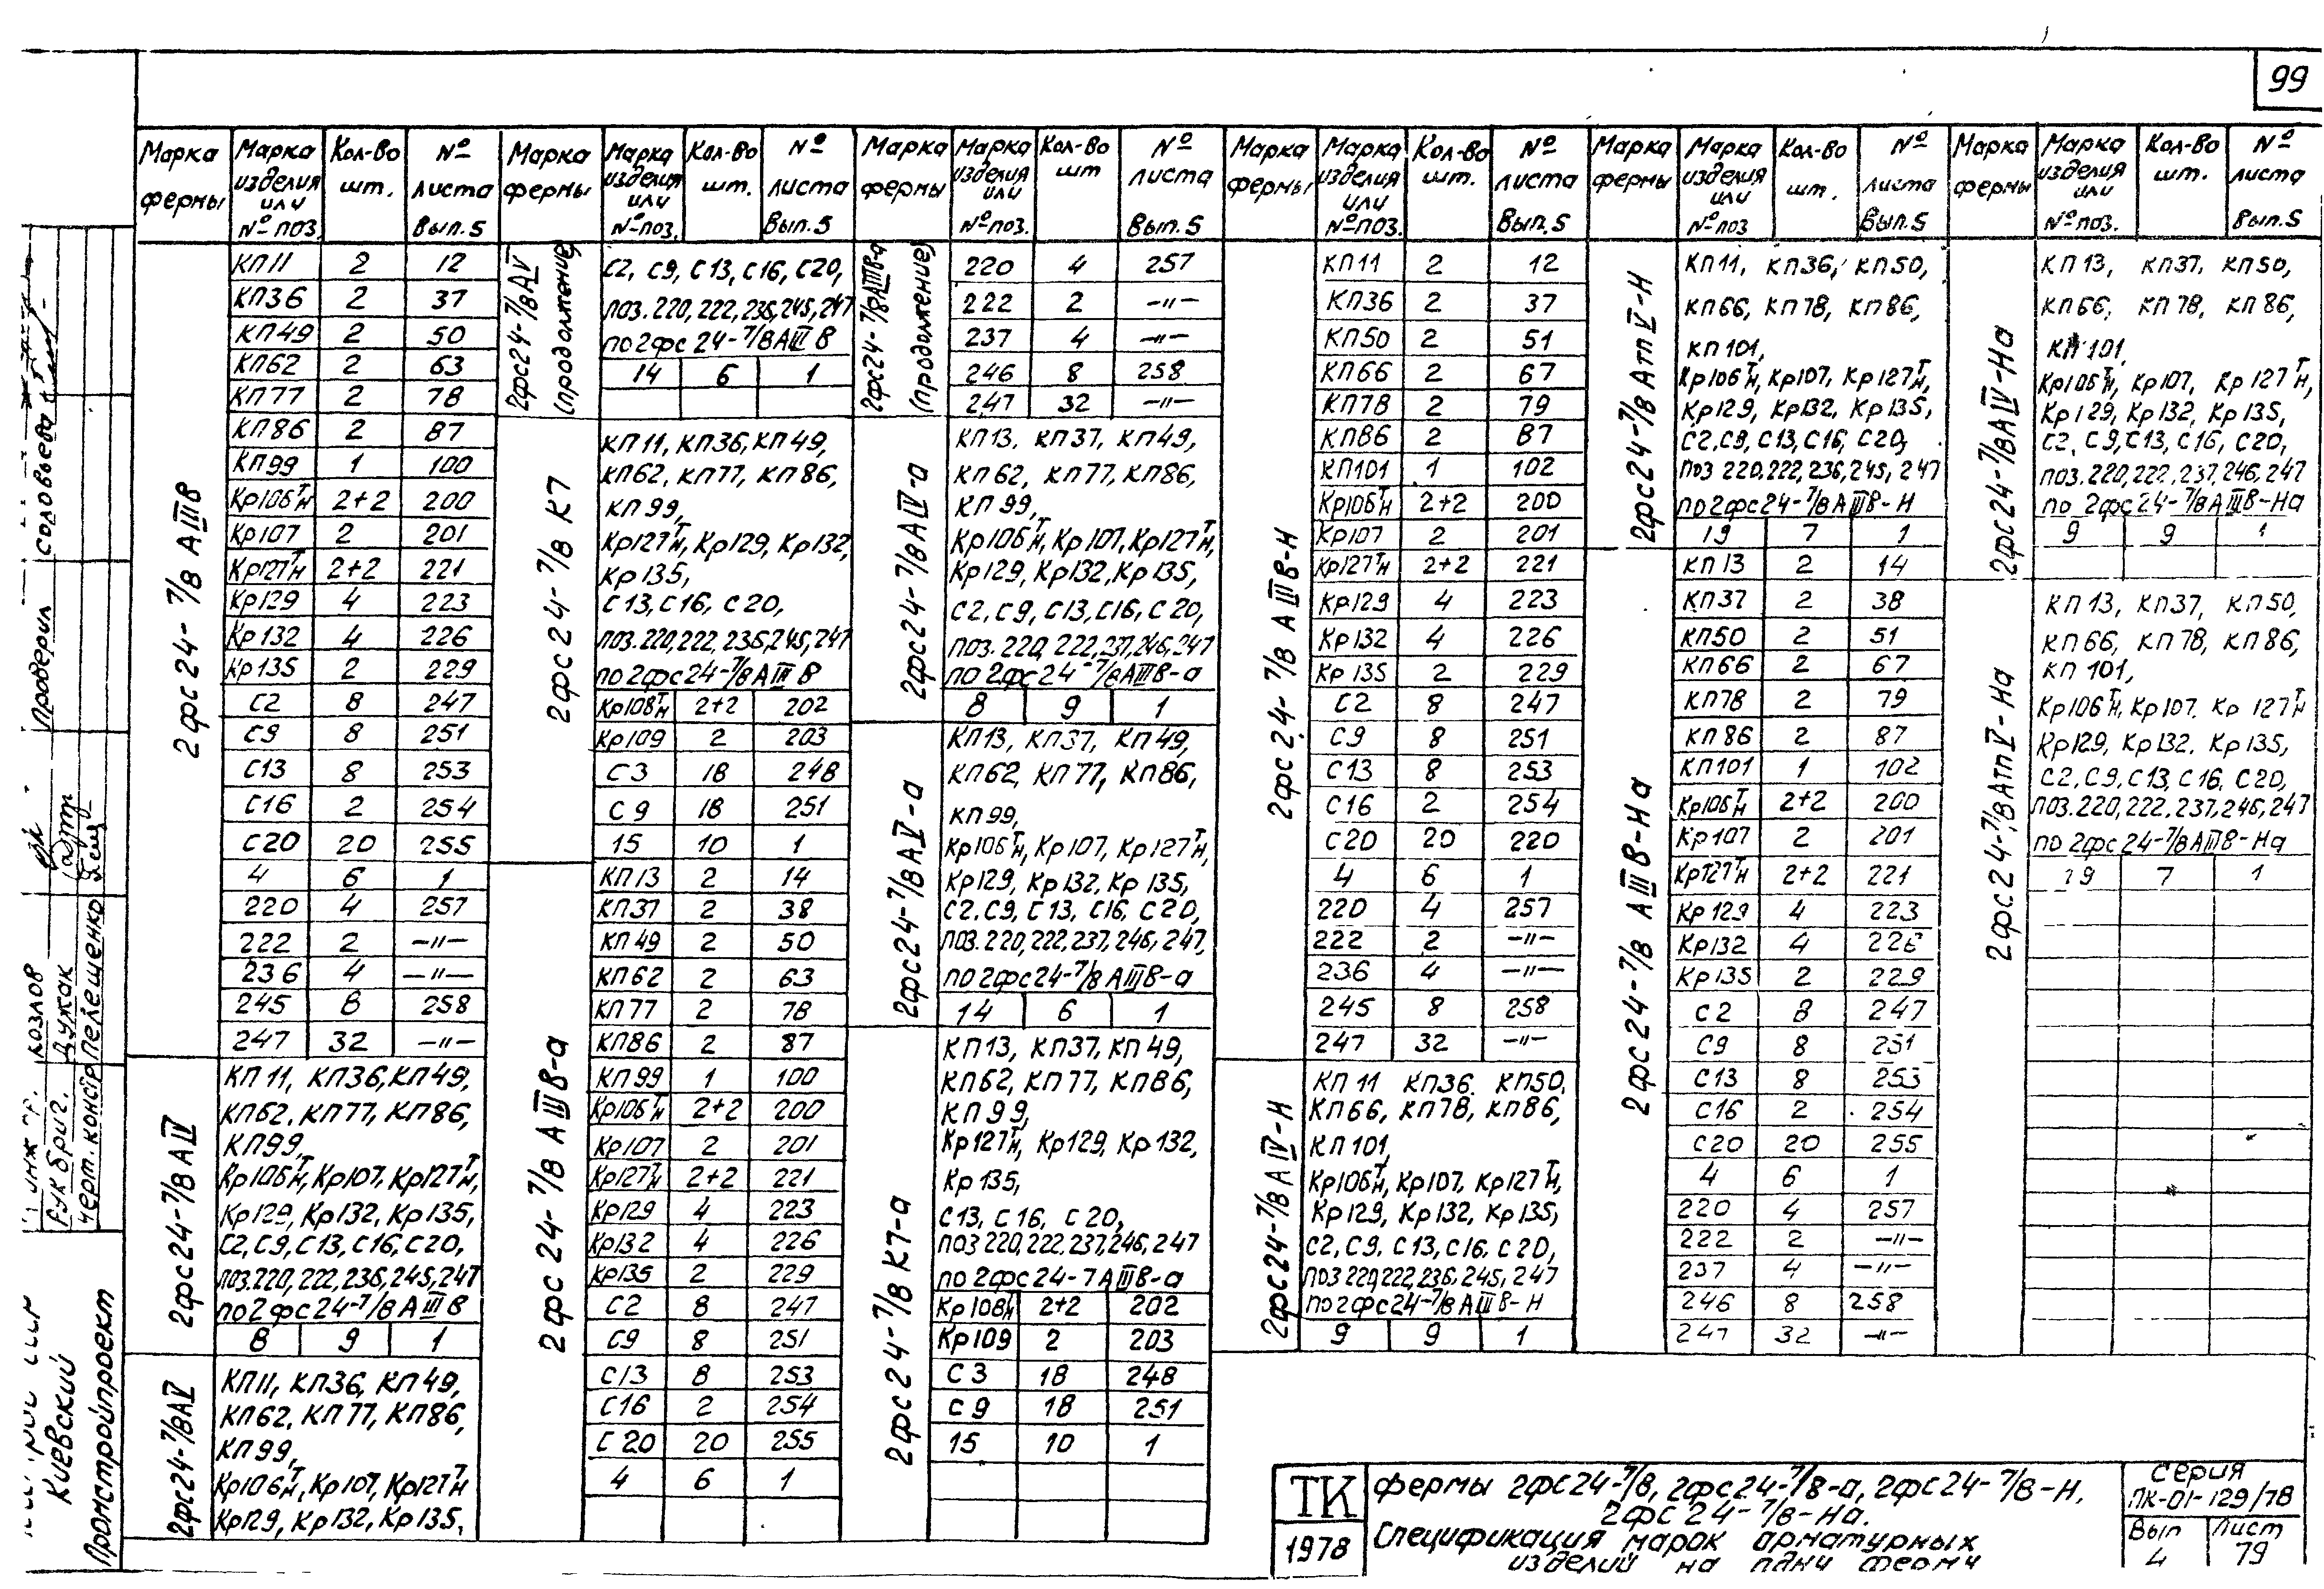 99
Марка фермы | Марка изделия или № поз. | Кол-во шт. | № листа Вып.5
2фс24-7/8 АIIIв
КП11 2 12
КП36 2 37
КП49 2 50
КП62 2 63
КП77 2 78
КП86 2 87
КП99 1 100
Кр106тн 2+2 200
Кр107 2 201
Кр127тн 2+2 221
Кр129 4 223
Кр132 4 226
Кр135 2 229
С2 8 247
С9 8 251
С13 8 253
С16 2 254
С20 20 255
4 6 1
220 4 257
222 2 -"-
236 4 -"-
245 8 258
247 32 -"-
2фс24-7/8АIV
КП11, КП36, КП49,
КП62, КП77, КП86,
КП99,
Кр106тн, Кр107, Кр127тн,
Кр129, Кр132, Кр135,
С2, С9, С13, С16, С20,
поз.220,222,236,245,247
по 2фс24-7/8АIIIв
8 9 1
2фс24-7/8АV
КП11, КП36, КП49,
КП62, КП77, КП86,
КП99,
Кр106тн, Кр107, Кр127тн
Кр129, Кр132, Кр135,
Марка фермы | Марка изделия или № поз. | Кол-во шт. | № листа Вып.5
2фс24-7/8АV (продолжение)
С2, С9, С13, С16, С20,
поз.220,222,236,245,247
по 2фс24-7/8АIIIв
14 6 1
2фс24-7/8 К7
КП11, КП36, КП49,
КП62, КП77, КП86,
КП99,
Кр127тн, Кр129, Кр132,
Кр135,
С13, С16, С20,
поз.220,222,236,245,247
по 2фс24-7/8АIIIв
Кр108тн 2+2 202
Кр109 2 203
С3 18 248
С9 18 251
15 10 1
2фс24-7/8 АIIIв-а
КП13 2 14
КП37 2 38
КП49 2 50
КП62 2 63
КП77 2 78
КП86 2 87
КП99 1 100
Кр106тн 2+2 200
Кр107 2 201
Кр127тн 2+2 221
Кр129 4 223
Кр132 4 226
Кр135 2 229
С2 8 247
С9 8 251
С13 8 253
С16 2 254
С20 20 255
4 6 1
Марка фермы | Марка изделия или № поз. | Кол-во шт | № листа Вып.5
2фс24-7/8АIIIв-а (продолжение)
220 4 257
222 2 -"-
237 4 -"-
246 8 258
247 32 -"-
2фс24-7/8АIV-а
КП13, КП37, КП49,
КП62, КП77, КП86,
КП99,
Кр106тн, Кр107, Кр127тн,
Кр129, Кр132, Кр135,
С2, С9, С13, С16, С20,
поз.220,222,237,246,247
по 2фс24-7/8АIIIв-а
8 9 1
2фс24-7/8АV-а
КП13, КП37, КП49,
КП62, КП77, КП86,
КП99,
Кр106тн, Кр107, Кр127тн,
Кр129, Кр132, Кр135,
С2, С9, С13, С16, С20,
поз.220,222,237,246,247,
по 2фс24-7/8АIIIв-а
14 6 1
2фс24-7/8 К7-а
КП13, КП37, КП49,
КП62, КП77, КП86,
КП99,
Кр127тн, Кр129, Кр132,
Кр135,
С13, С16, С20,
поз 220,222,237,246,247
по 2фс24-7АIIIв-а
Кр108тн 2+2 202
Кр109 2 203
С3 18 248
С9 18 251
15 10 1
Марка фермы | Марка изделия или № поз. | Кол-во шт. | № листа Вып.5
2фс24-7/8 АIIIв-Н
КП11 2 12
КП36 2 37
КП50 2 51
КП66 2 67
КП78 2 79
КП86 2 87
КП101 1 102
Кр106тн 2+2 200
Кр107 2 201
Кр127тн 2+2 221
Кр129 4 223
Кр132 4 226
Кр135 2 229
С2 8 247
С9 8 251
С13 8 253
С16 2 254
С20 20 220
4 6 1
220 4 257
222 2 -"-
236 4 -"-
245 8 258
247 32 -"-
2фс24-7/8АIV-Н
КП11 КП36, КП50,
КП66, КП78, КП86,
КП101,
Кр106тн, Кр107, Кр127тн,
Кр129, Кр132, Кр135,
С2, С9, С13, С16, С20,
поз 220,222,236,245,247
по 2фс24-7/8АIIIв-Н
9 9 1
Марка фермы | Марка изделия или № поз | Кол-во шт. | № листа Вып.5
2фс24-7/8АтпV-Н
КП11, КП36, КП50,
КП66, КП78, КП86,
КП101,
Кр106тн, Кр107, Кр127тн,
Кр129, Кр132, Кр135,
С2, С9, С13, С16, С20,
поз 220,222,236,245,247
по 2фс24-7/8АIIIв-Н
19 7 1
2фс24-7/8 АIIIв-На
КП13 2 14
КП37 2 38
КП50 2 51
КП66 2 67
КП78 2 79
КП86 2 87
КП101 1 102
Кр106тн 2+2 200
Кр107 2 201
Кр127тн 2+2 221
Кр129 4 223
Кр132 4 226
Кр135 2 229
С2 8 247
С9 8 251
С13 8 253
С16 2 254
С20 20 255
4 6 1
220 4 257
222 2 -"-
237 4 -"-
246 8 258
247 32 -"-
Марка фермы | Марка изделия или № поз. | Кол-во шт. | № листа Вып.5
2фс24-7/8АIV-На
КП13, КП37, КП50,
КП66, КП78, КП86,
КП101,
Кр106тн, Кр107, Кр127тн,
Кр129, Кр132, Кр135,
С2, С9, С13, С16, С20,
поз.220,222,237,246,247
по 2фс24-7/8АIIIв-На
9 9 1
2фс24-7/8АтпV-На
КП13, КП37, КП50,
КП66, КП78, КП86,
КП101,
Кр106тн, Кр107, Кр127тн
Кр129, Кр132, Кр135,
С2, С9, С13, С16, С20,
поз.220,222,237,246,247
по 2фс24-7/8АIIIв-На
19 7 1
Проверил Соловьева
Козлов
Рук бриг. Дужак
черт. констр Пелещенко
Киевский
Промстройпроект
ТК
1978
Фермы 2фс24-7/8, 2фс24-7/8-а, 2фс24-7/8-Н,
2фс24-7/8-На.
Спецификация марок арматурных
изделий на одну ферму
Серия
ПК-01-129/78
Вып
4
Лист
79